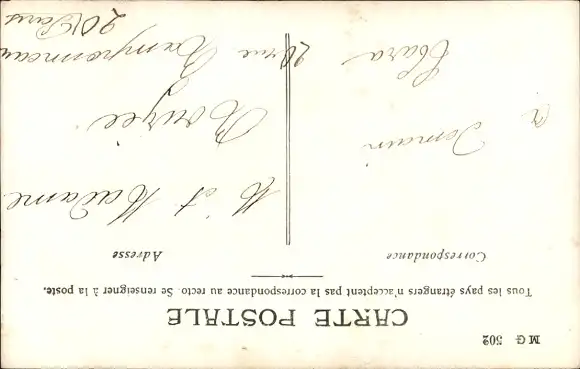 M G 502
CARTE POSTALE
Tous les pays étrangers n'acceptent pas la correspondance au recto. Se renseigner à la poste.
Correspondance
a Demain
Clara
Adresse
M et Madame
20 rue Ramponneau
20 Paris